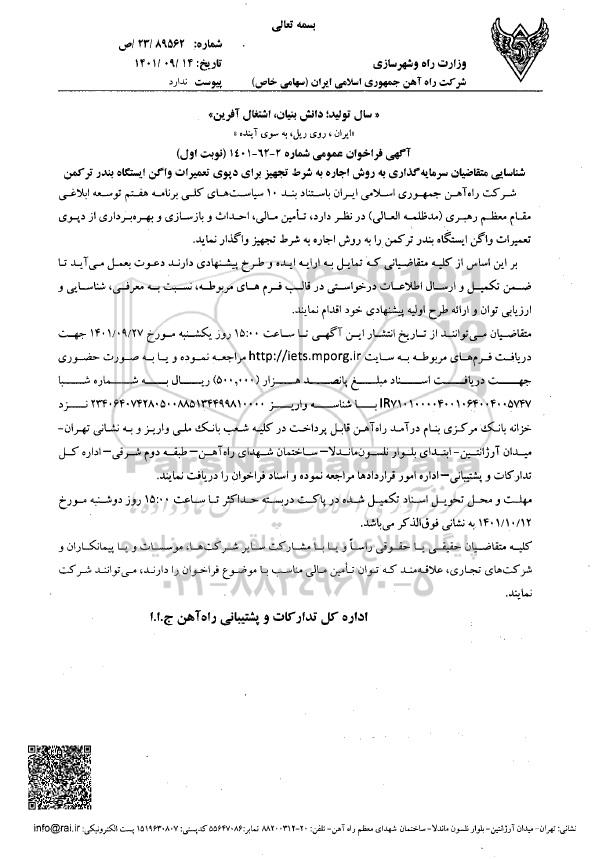 بسمه تعالی
شماره: ۲۳/۸۹۵۶۲/ص
وزارت راه وشهرسازی
تاریخ: ۱۴۰۱/۰۹/۱۴
شرکت راه آهن جمهوری اسلامی ایران (سهامی خاص)
پیوست ندارد
« سال تولید؛ دانش بنیان، اشتغال آفرین»
«ایران ، روی ریل، به سوی آینده »
آگهی فراخوان عمومی شماره ۲-۶۲-۱۴۰۱ (نوبت اول)
شناسایی متقاضیان سرمایه‌گذاری به روش اجاره به شرط تجهیز برای دپوی تعمیرات واگن ایستگاه بندر ترکمن
شرکت راه‌آهن جمهوری اسلامی ایران باستناد بند ۱۰ سیاست‌های کلی برنامه هفتم توسعه ابلاغی
مقام معظم رهبری (مدظلمه العالی) در نظر دارد، تأمین مالی، احداث و بازسازی و بهره‌برداری از دپوی
تعمیرات واگن ایستگاه بندر ترکمن را به روش اجاره به شرط تجهیز واگذار نماید.
بر این اساس از کلیه متقاضیانی که تمایل به ارایه ایده و طرح پیشنهادی دارند دعوت بعمل می‌آید تا
ضمن تکمیل و ارسال اطلاعات درخواستی در قالب فرم های مربوطه، نسبت به معرفی، شناسایی و
ارزیابی توان و ارائه طرح اولیه پیشنهادی خود اقدام نمایند.
متقاضیان می‌توانند از تاریخ انتشار این آگهی تا ساعت ۱۵:۰۰ روز یکشنبه مورخ ۱۴۰۱/۰۹/۲۷ جهت
دریافت فرم‌های مربوطه به سایت http://iets.mporg.ir مراجعه نموده و یا به صورت حضوری
جهت دریافت اسناد مبلغ پانصد هزار (۵۰۰,۰۰۰) ریال به شماره شبا
IR۷۱۰۱۰۰۰۰۴۰۰۱۰۶۴۰۰۴۰۰۵۷۴۷ با شناسه واریز ۲۳۴۰۶۴۰۷۴۲۸۰۵۰۰۸۸۵۱۳۴۴۹۹۸۱۰۰۰۰ نزد
خزانه بانک مرکزی بنام درآمد راه‌آهن قابل پرداخت در کلیه شعب بانک ملی واریز و به نشانی تهران-
میدان آرژانتین- ابتدای بلوار نلسون‌ماندلا- ساختمان شهدای راه‌آهن- طبقه دوم شرقی- اداره کل
تدارکات و پشتیبانی- اداره امور قراردادها مراجعه نموده و اسناد فراخوان را دریافت نمایند.
مهلت و محل تحویل اسناد تکمیل شده در پاکت دربسته حداکثر تا ساعت ۱۵:۰۰ روز دوشنبه مورخ
۱۴۰۱/۱۰/۱۲ به نشانی فوق‌الذکر می‌باشد.
کلیه متقاضیان حقیقی یا حقوقی راساً و یا با مشارکت سایر شرکت‌ها، موسسات و یا پیمانکاران و
شرکت‌های تجاری، علاقه‌مند که توان تأمین مالی مناسب با موضوع فراخوان را دارند، می‌توانند شرکت
نمایند.
ParsNamadData
۰۲۱-۸۸۳۴۹۶۷۰-۵
اداره کل تدارکات و پشتیبانی راه‌آهن ج.ا.ا
نشانی: تهران- میدان آرژانتین- بلوار نلسون ماندلا- ساختمان شهدای معظم راه آهن- تلفن: ۲۰-۸۸۲۰۰۳۱۲ نمابر: ۵۵۶۴۷۰۸۶ کدپستی: ۱۵۱۹۶۳۰۸۰۷ پست الکترونیکی: info@rai.ir